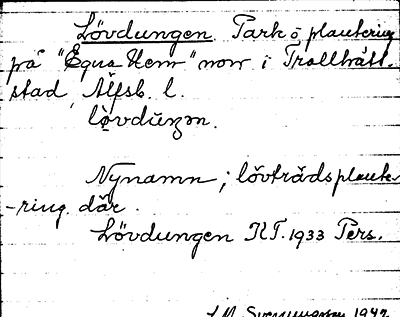 Lövdungen Park o plantering
på "Egna Hem" norr i Trollhätt.
stad, Älfsb. l.
lövduŋən.
Nynamn; lövträdsplante-
-ring där.
Lövdungen KT. 1933 Pers.
1942